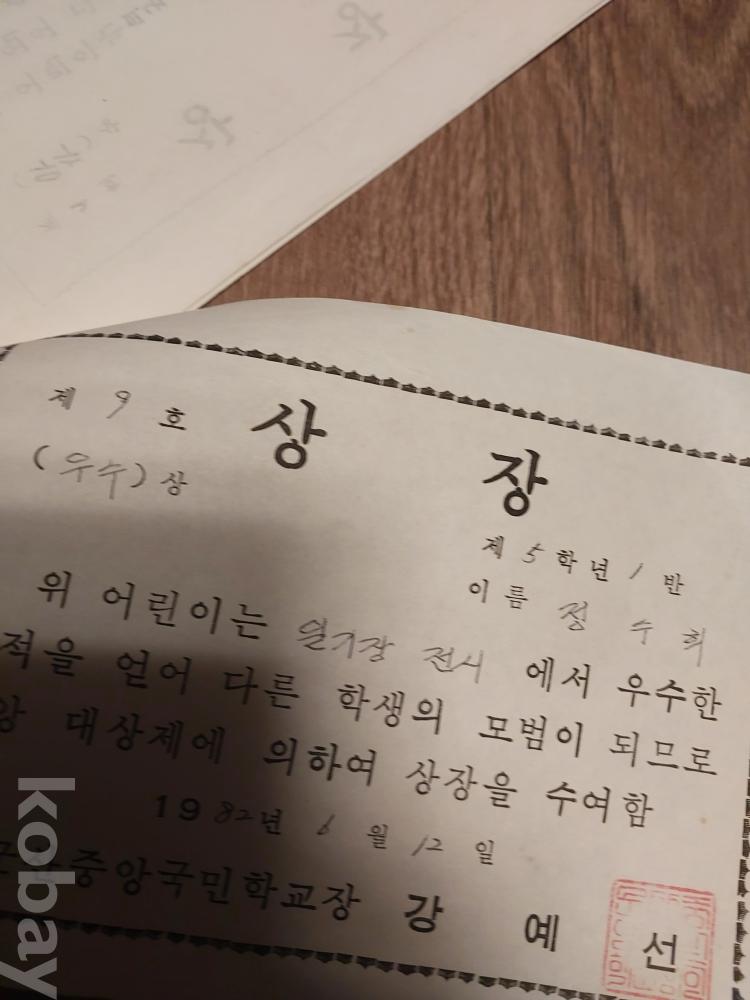 제 9 호
상 장
(우수) 상
제 5 학년 1 반
이름 정수희
위 어린이는 일기장 전시 에서 우수한
적을 얻어 다른 학생의 모범이 되므로
대상제에 의하여 상장을 수여함
1982년 6 월 12 일
중앙국민학교장 강 예 선
kobay